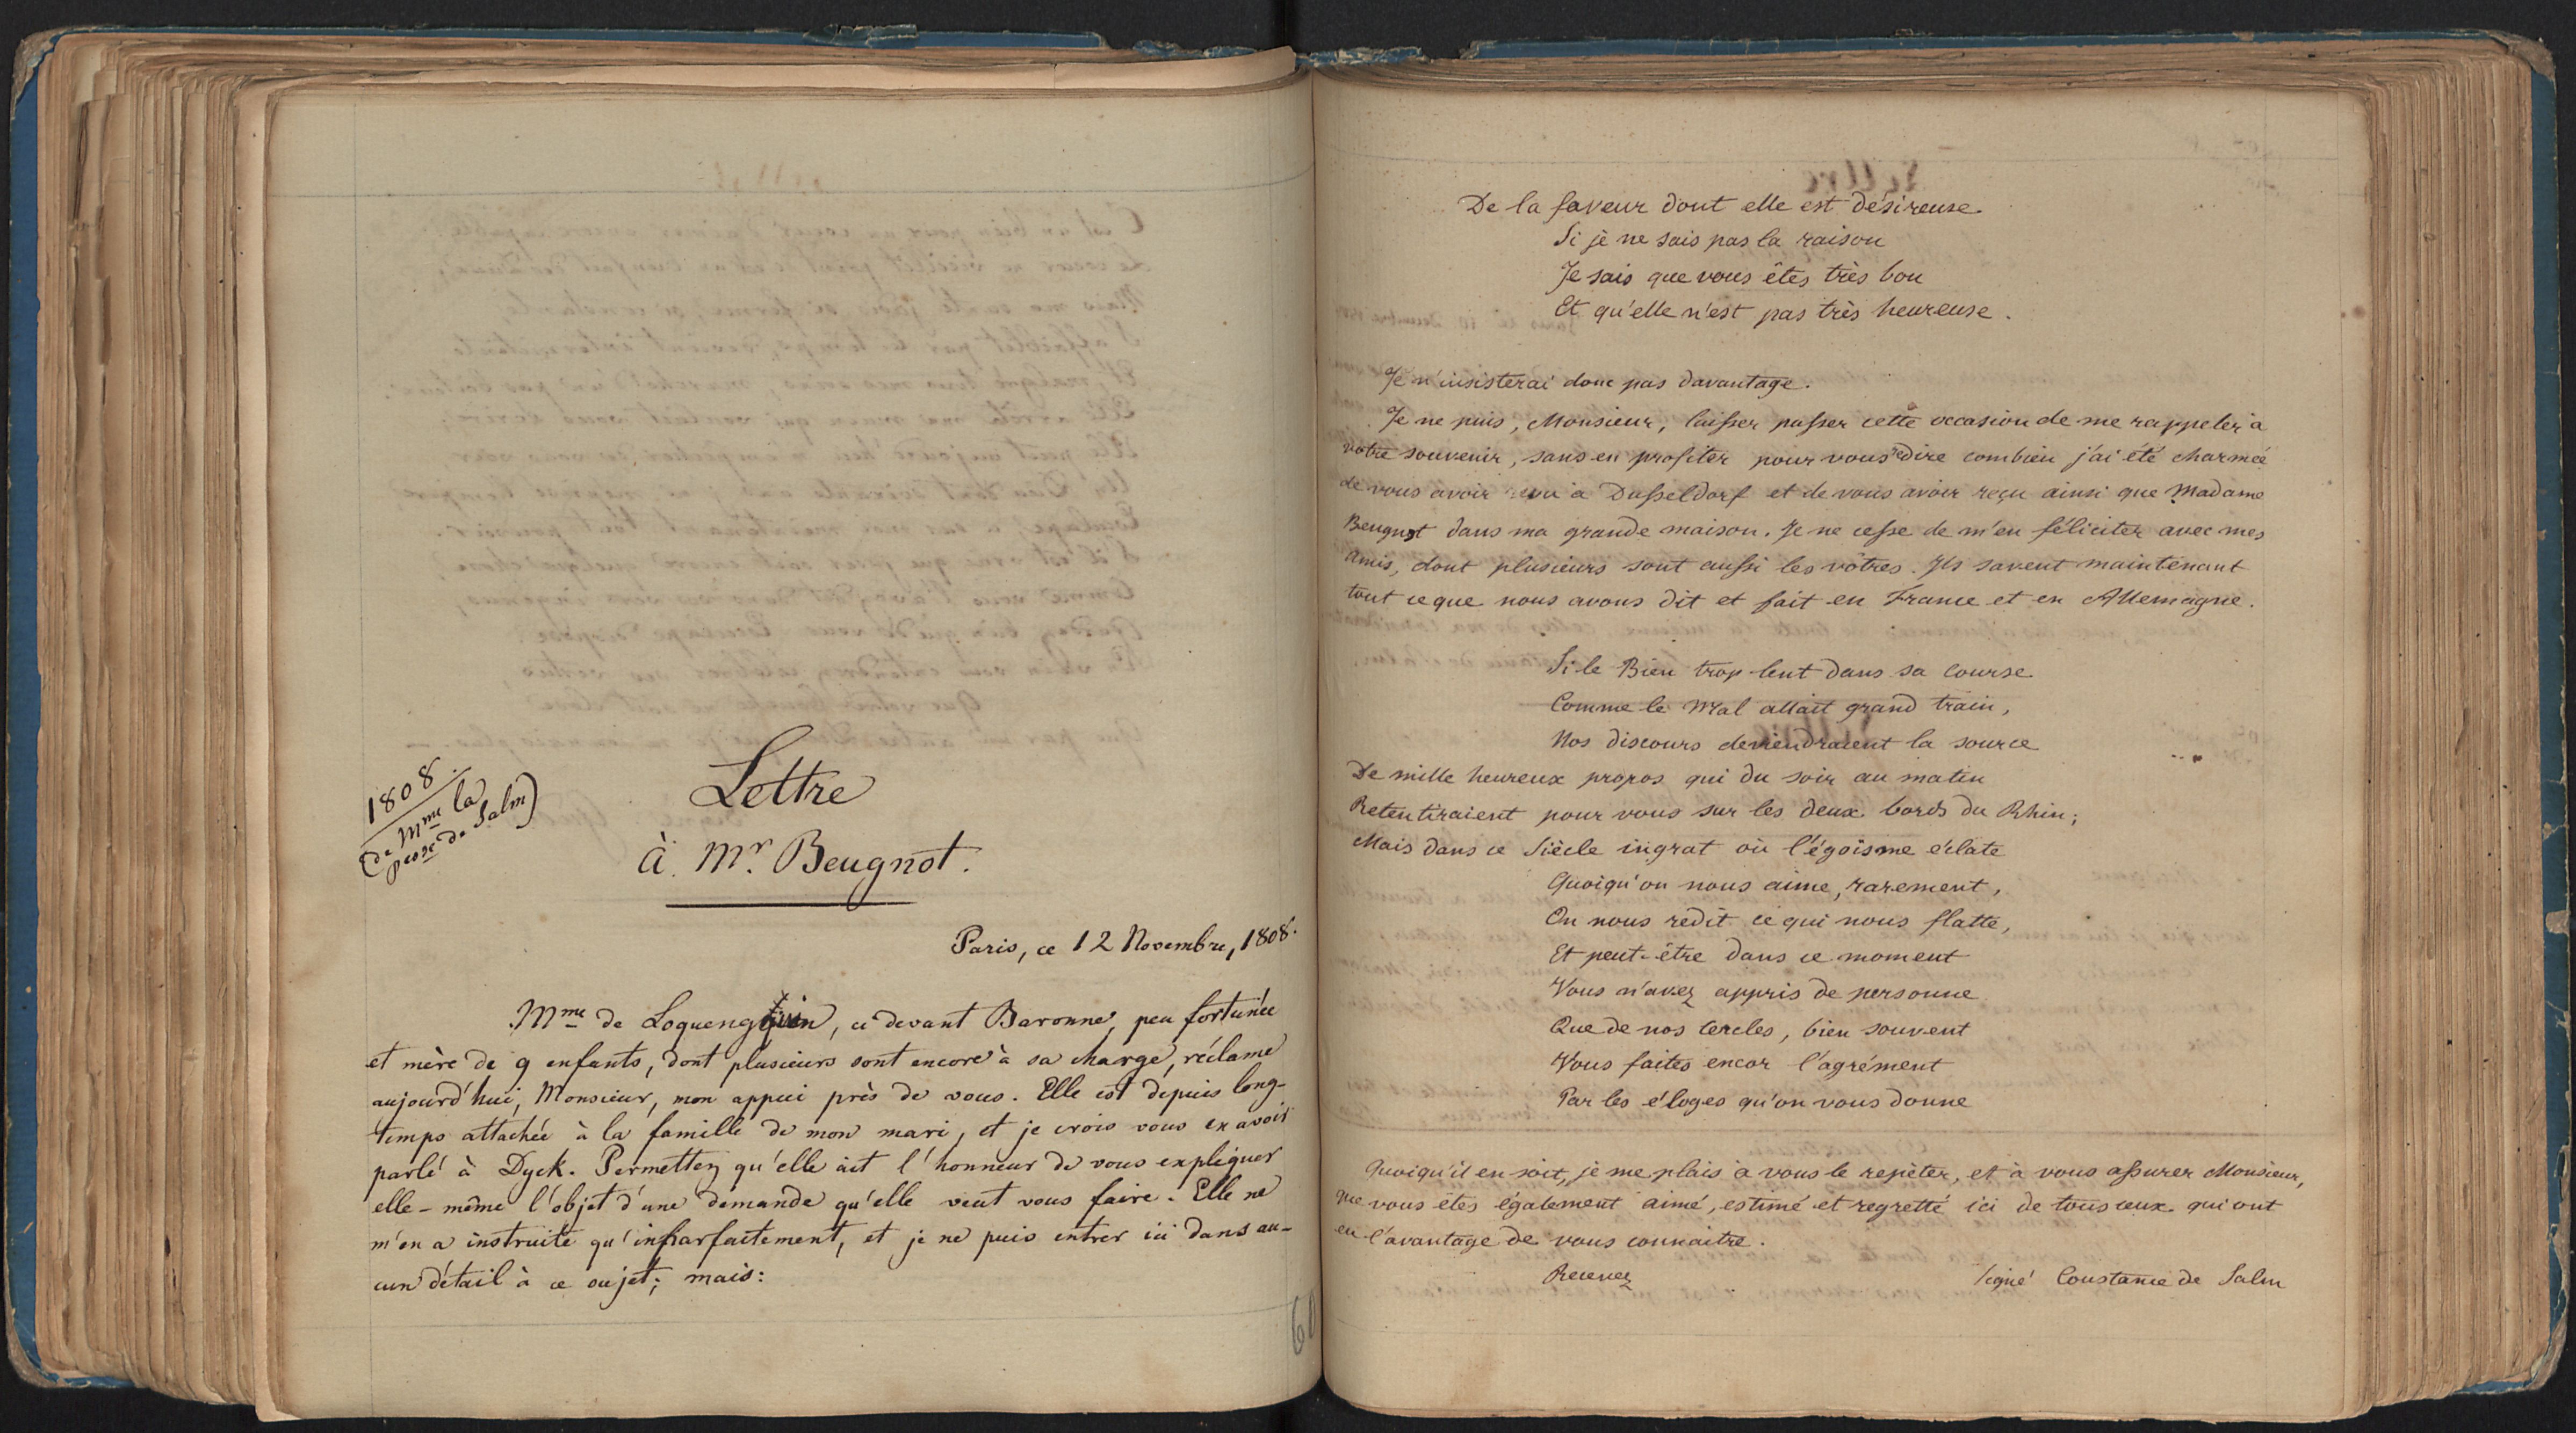 1808.
(de Mme la
pcsse de Salm)
Lettre
à Mr. Beugnot.
Paris, ce 12 Novembre, 1808.
Mme de Loquenghien, ci devant Baronne, peu fortunée
et mère de 9 enfants, dont plusieurs sont encore à sa charge, réclame
aujourd'hui, Monsieur, mon appui près de vous. Elle est depuis long-
temps attachée à la famille de mon mari, et je crois vous en avoir
parlé à Dyck. Permettez qu'elle ait l'honneur de vous expliquer
elle-même l'objet d'une demande qu'elle veut vous faire. Elle ne
m'en a instruite qu'imparfaitement, et je ne puis entrer ici dans au-
cun détail à ce sujet; mais:
60
De la faveur dont elle est désireuse
Si je ne sais pas la raison
Je sais que vous êtes très bon
Et qu'elle n'est pas très heureuse.
Je n'insisterai donc pas davantage.
Je ne puis, Monsieur, laisser passer cette occasion de me rappeler à
votre souvenir, sans en profiter pour vous redire combien j'ai été charmée
de vous avoir revu à Dusseldorf et de vous avoir reçu ainsi que Madame
Beugnot dans ma grande maison. Je ne cesse de m'en féliciter avec mes
amis, dont plusieurs sont aussi les vôtres. Ils savent maintenant
tout ce que nous avons dit et fait en France et en Allemagne.
Si le Bien trop lent dans sa course
Comme le Mal allait grand train,
Nos discours deviendraient la source
De mille heureux propos qui du soir au matin
Retentiraient pour vous sur les deux bords du Rhin;
Mais dans ce Siècle ingrat où l'égoïsme éclate
Quoiqu'on nous aime, rarement,
On nous redit ce qui nous flatte,
Et peut-être dans ce moment
Vous n'avez appris de personne
Que de nos cercles, bien souvent
Vous faites encor l'agrément
Par les éloges qu'on vous donne
Quoiqu'il en soit, je me plais à vous le repèter, et à vous assurer Monsieur,
que vous êtes également aimé, estimé et regretté ici de tous ceux qui ont
eu l'avantage de vous connaitre.
Recevez signé Constance de Salm